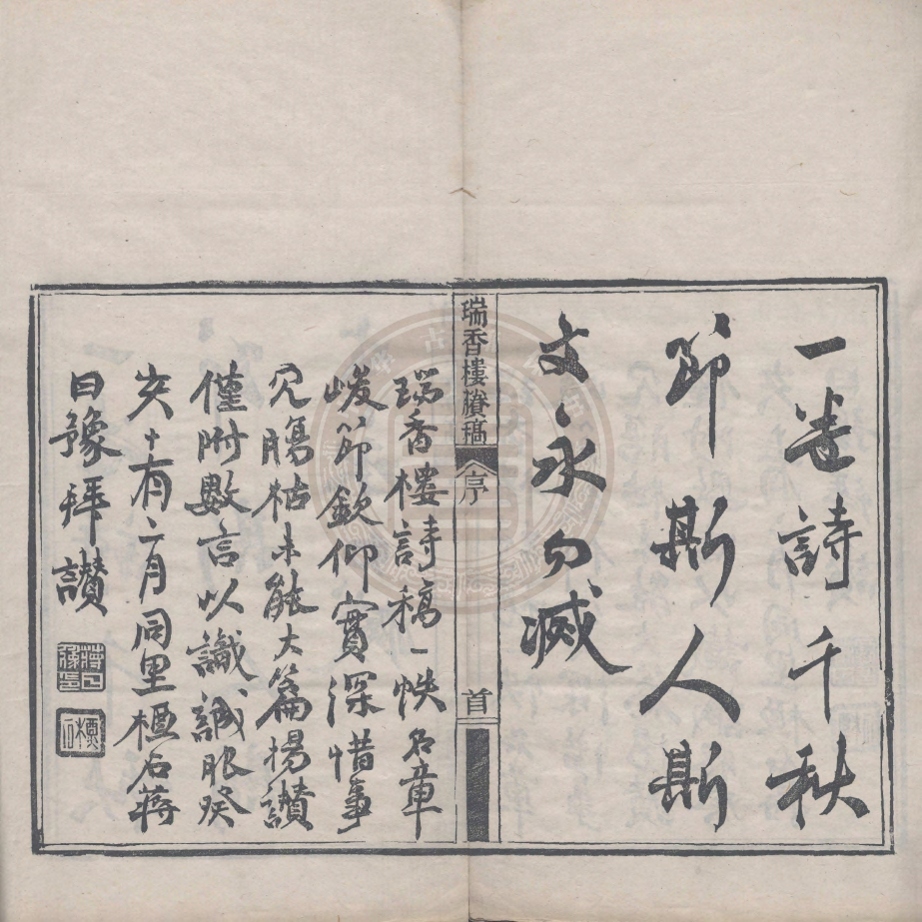 一卷詩千秋
節斯人斯
文永勿滅
瑞香樓賸稿
序
首
瑞香樓詩稿一帙名章
峻節欽仰實深惜事
冗腸枯未能大篇揚讃
僅附數言以識誠服癸
亥十有二月同里石蔣
曰豫拜讃